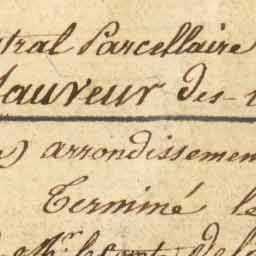 stral Parcellaire
Sauveur des-
) arrondissemen
Terminé le